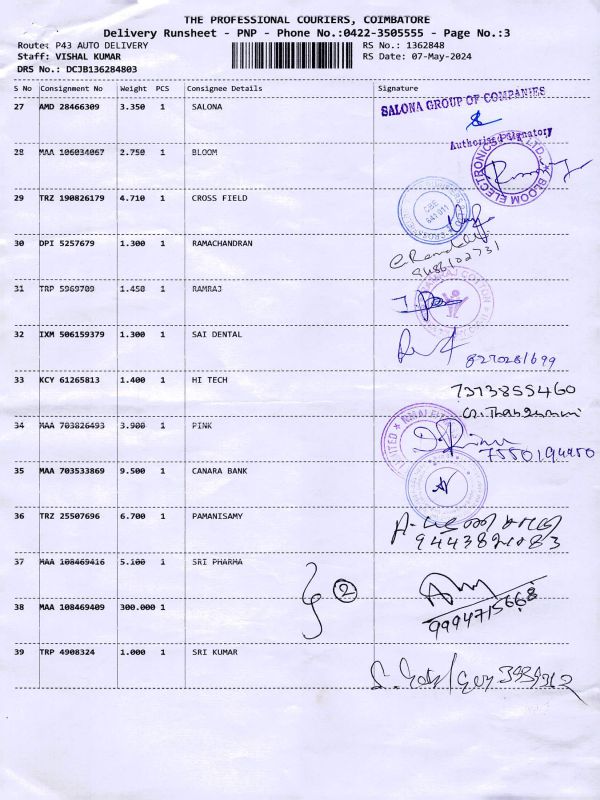 THE PROFESSIONAL COURIERS, COIMBATORE
Delivery Runsheet - PNP - Phone No.:0422-3505555 - Page No.:3
Route: P43 AUTO DELIVERY RS No.: 1362848
Staff: VISHAL KUMAR RS Date: 07-May-2024
DRS No.: DCJB136284803
S No Consignment No Weight PCS Consignee Details Signature
27 AMD 28466309 3.350 1 SALONA SALONA GROUP OF COMPANIES
Authorised Signatory
28 MAA 106034067 2.750 1 BLOOM BLOOM ELECTRONICS
29 TRZ 190826179 4.710 1 CROSS FIELD CBE 641 011
30 DPI 5257679 1.300 1 RAMACHANDRAN
9486102731
31 TRP 5969709 1.450 1 RAMRAJ RAMRAJ COTTON
32 IXM 506159379 1.300 1 SAI DENTAL 8270281699
33 KCY 61265813 1.400 1 HI TECH 7373855460
34 MAA 703826493 3.900 1 PINK LIMITED
7550194450
35 MAA 703533869 9.500 1 CANARA BANK
36 TRZ 25507696 6.700 1 PAMANISAMY
9443821083
37 MAA 108469416 5.100 1 SRI PHARMA
2
38 MAA 108469409 300.000 1 9994715668
39 TRP 4908324 1.000 1 SRI KUMAR